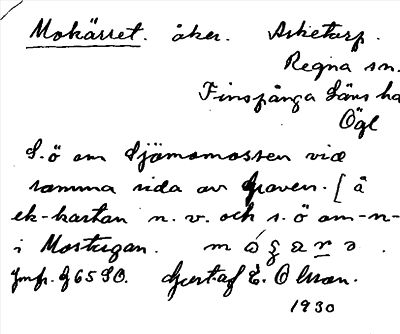 Mokärret. åker. Asketorp.
Regna sn.
Finspånga Läns ha
Ögl
S.ö om Sjömomossen vid
samma sida av graven. [ å
ek-kartan n.v. och s.ö om -n-
i Mostugan.
Jmfr. g 65 SO. Gustaf E. Olsson.
1930